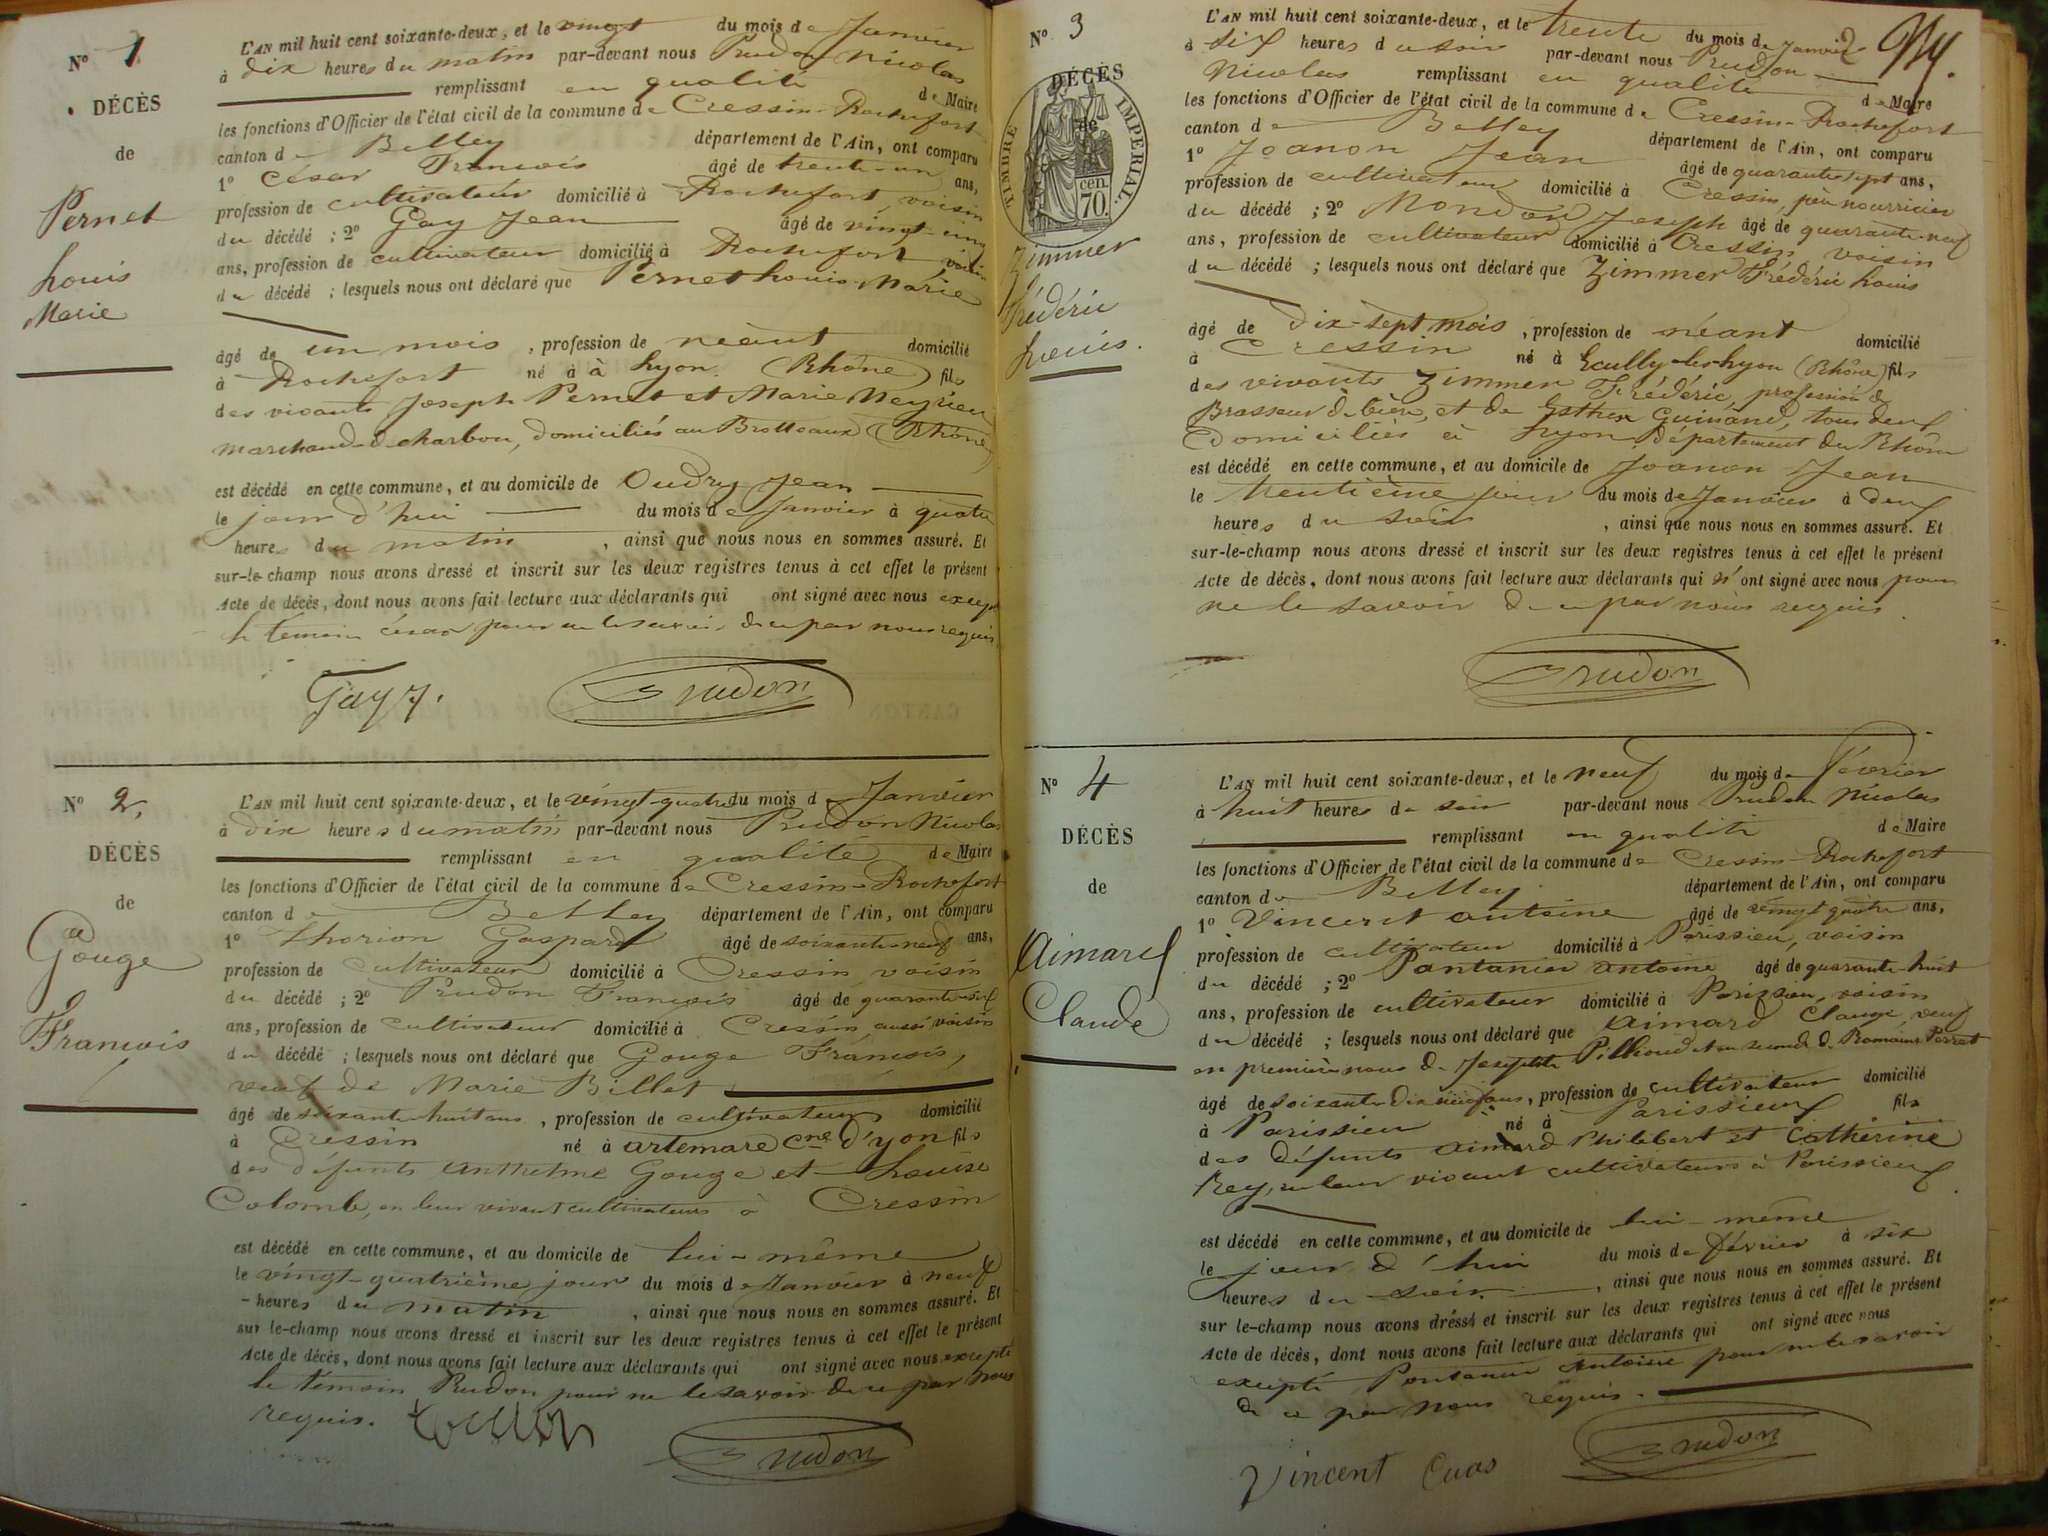 N° 1
DÉCÈS
de
Pernet
Louis
Marie
L'AN mil huit cent soixante-deux, et le vingt du mois de Janvier
à dix heures du matin par-devant nous Prudon Nicolas
remplissant en qualité de Maire
les fonctions d'Officier de l'état civil de la commune de Cressin-Rochefort
canton de Belley département de l'Ain, ont comparu
1° César François âgé de trente-un ans,
profession de cultivateur domicilié à Rochefort, voisin
du décédé ; 2° Gay Jean âgé de vingt-cinq
ans, profession de cultivateur domicilié à Rochefort voisin
du décédé ; lesquels nous ont déclaré que Pernet Louis-Marie
âgé de un mois, profession de néant domicilié
à Rochefort né à à Lyon (Rhône) fils
des vivants Joseph Pernet et Marie Neyrieu
marchand de charbon, domiciliés au Brotteaux (Rhône)
est décédé en cette commune, et au domicile de Oudry Jean
le jour d'hui du mois de Janvier à quatre
heures du matin, ainsi que nous nous en sommes assuré. Et
sur-le-champ nous avons dressé et inscrit sur les deux registres tenus à cet effet le présent
Acte de décès, dont nous avons fait lecture aux déclarants qui ont signé avec nous excepté
le témoin César pour ne le savoir de ce par nous requis
Gay J. Prudon
N° 2
DÉCÈS
de
Gouge
François
L'AN mil huit cent soixante-deux, et le vingt-quatre du mois de Janvier
à dix heures du matin par-devant nous Prudon Nicolas
remplissant en qualité de Maire
les fonctions d'Officier de l'état civil de la commune de Cressin-Rochefort
canton de Belley département de l'Ain, ont comparu
1° Thorion Gaspard âgé de soixante-neuf ans,
profession de cultivateur domicilié à Cressin voisin
du décédé ; 2° Prudon François âgé de quarante-neuf
ans, profession de cultivateur domicilié à Cressin aussi voisin
du décédé ; lesquels nous ont déclaré que Gouge François,
veuf de Marie Billet
âgé de soixante-huit ans, profession de cultivateur domicilié
à Cressin né à artemare cne d'yon fils
des défunts Anthelme Gouge et Louise
Colomb, en leur vivant cultivateurs à Cressin
est décédé en cette commune, et au domicile de lui-même
le vingt-quatrième jour du mois de Janvier à neuf
heures du matin, ainsi que nous nous en sommes assuré. Et
sur le-champ nous avons dressé et inscrit sur les deux registres tenus à cet effet le présent
Acte de décès, dont nous avons fait lecture aux déclarants qui ont signé avec nous excepté
le témoin Prudon pour ne le savoir de ce par nous
requis.
Prudon
2
N° 3
DÉCÈS
de
TIMBRE IMPÉRIAL
70 cen.
Zimmer
Frédéric
Louis.
L'AN mil huit cent soixante-deux, et le trente du mois de Janvier
à six heures du soir par-devant nous Prudon
Nicolas remplissant en qualité de Maire
les fonctions d'Officier de l'état civil de la commune de Cressin-Rochefort
canton de Belley département de l'Ain, ont comparu
1° Joanon Jean âgé de quarante sept ans,
profession de cultivateur domicilié à Cressin, père nourricier
du décédé ; 2° Mondon Joseph âgé de quarante-neuf
ans, profession de cultivateur domicilié à Cressin, voisin
du décédé ; lesquels nous ont déclaré que Zimmer Frédéric Louis
âgé de dix-sept mois, profession de néant domicilié
à Cressin né à Ecully-les-Lyon (Rhône) fils
des vivants Zimmer Frédéric, profession de
Brasseur de bière, et de Esther Guinand, tous deux
domiciliés à Lyon département du Rhône
est décédé en cette commune, et au domicile de Joanon Jean
le trentième jour du mois de Janvier à deux
heures du soir, ainsi que nous nous en sommes assuré. Et
sur-le-champ nous avons dressé et inscrit sur les deux registres tenus à cet effet le présent
Acte de décès, dont nous avons fait lecture aux déclarants qui n'ont signé avec nous pour
ne le savoir de ce par nous requis
Prudon
N° 4
DÉCÈS
de
Aimard
Claude
L'AN mil huit cent soixante-deux, et le neuf du mois de Février
à huit heures de soir par-devant nous Prudon Nicolas
remplissant en qualité de Maire
les fonctions d'Officier de l'état civil de la commune de Cressin-Rochefort
canton de Belley département de l'Ain, ont comparu
1° Vincent antoine âgé de vingt quatre ans,
profession de cultivateur domicilié à Parissieu, voisin
du décédé ; 2° Pantanier antoine âgé de quarante-huit
ans, profession de cultivateur domicilié à Parissieu, voisin
du décédé ; lesquels nous ont déclaré que Aimard Claude veuf
en première noces de Josephte Pilloud et en seconde de Romaine Perret
âgé de soixante dix neuf ans, profession de cultivateur domicilié
à Parissieu né à Parissieux fils
des défunts Aimard Philibert et Catherine
Rey, en leur vivant cultivateurs à Parissieux
est décédé en cette commune, et au domicile de lui-même
le jour d'hui du mois de février à six
heures du soir, ainsi que nous nous en sommes assuré. Et
sur le-champ nous avons dressé et inscrit sur les deux registres tenus à cet effet le présent
Acte de décès, dont nous avons fait lecture aux déclarants qui ont signé avec nous
excepté Pantanier Antoine pour ne le savoir
de ce par nous requis.
Vincent Prudon